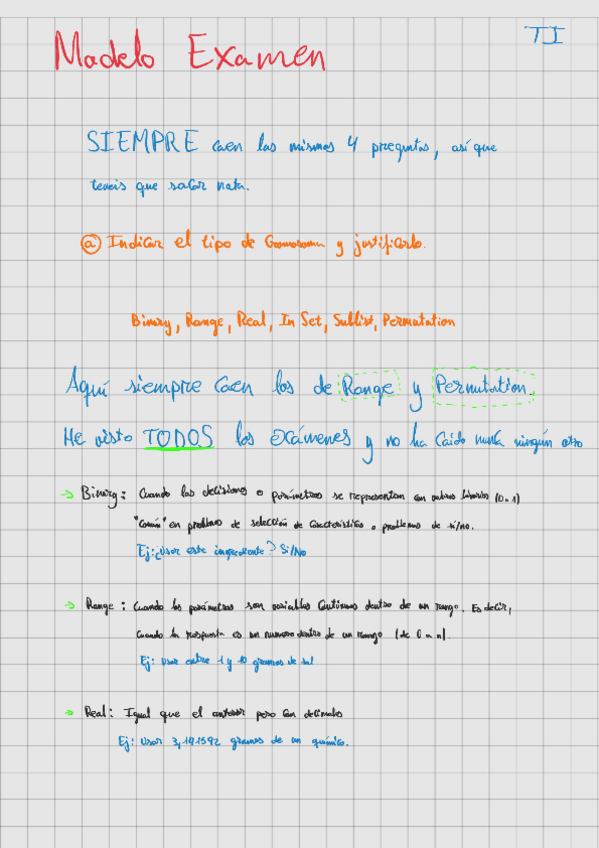 Modelo Examen
TI
SIEMPRE caen las mismas 4 preguntas, así que
teneis que sacar nota.
ⓐ Indicar el tipo de Cromosoma y justificarlo.
Binary, Range, Real, In Set, Sublist, Permutation
Aquí siempre Caen los de Range y Permutation.
He visto TODOS los exámenes y no ha Caido nunca ningún otro
→ Binary: Cuando las decisiones o parámetros se representan con binarios (0-1)
"Común" en problemas de selección de Características o problemas de si/no.
Ej: ¿Usar este ingrediente? Si/No
→ Range: Cuando los parámetros son variables Continuas dentro de un rango. Es decir,
Cuando la respuesta es un numero dentro de un rango (de 0 - n).
Ej: Usar entre 1 y 10 gramos de sal
→ Real: Igual que el anterior pero Con decimales
Ej: Usar 3,141592 gramos de un químico.